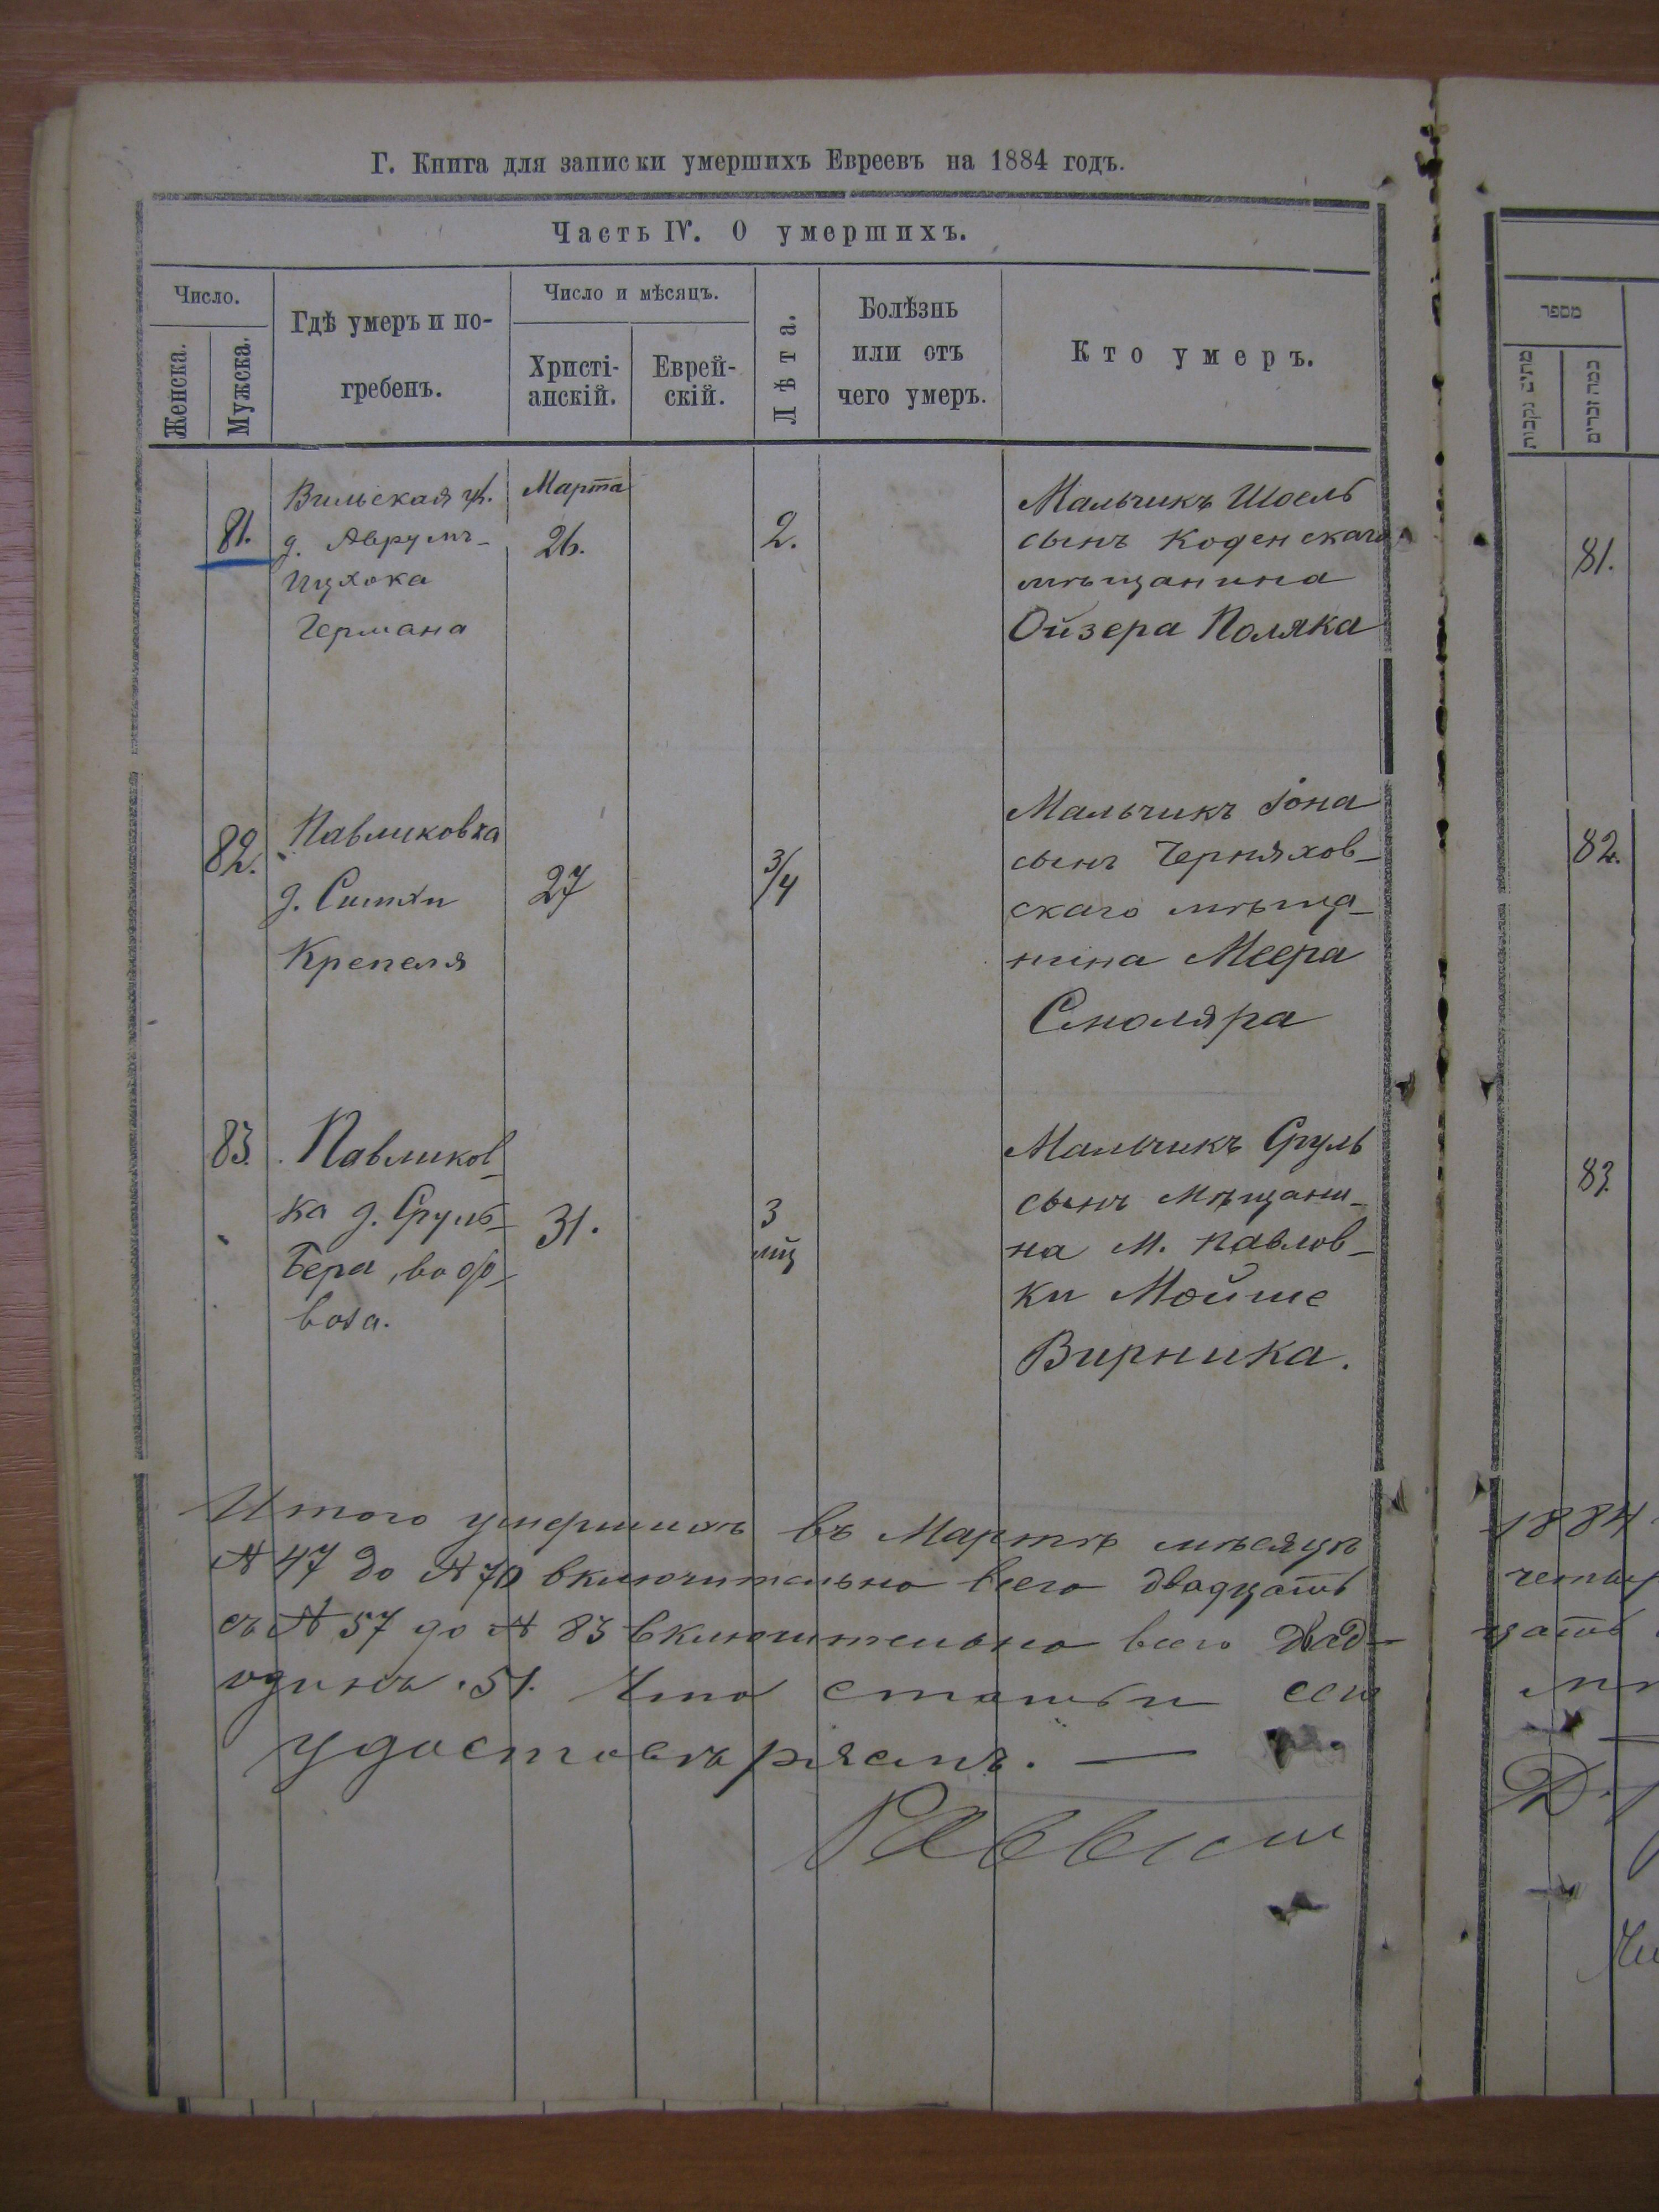 Г. Книга для записки умершихъ Евреевъ на 1884 годъ.
Часть IV. О умершихъ.
Число.
Женска.
Мужска.
Гдѣ умеръ и по-
гребенъ.
Число и мѣсяцъ.
Христі-
анскій.
Еврей-
скій.
Лѣта.
Болѣзнь
или отъ
чего умеръ.
Кто умеръ.
81.
Вильская ул.
д. Аврумъ-
Ицхока
Германа
Марта
26.
2.
Мальчикъ Шоель
сынъ Коденскаго
мѣщанина
Ойзера Поляка
82.
Павликовка
д. Симхи
Крепеля
27
3/4
Мальчикъ Іона
сынъ Черняхов-
скаго мѣща-
нина Меера
Смоляра
83.
Павликов-
ка д. Сруль-
Бера, водо-
воза.
31.
3
мц
Мальчикъ Сруль
сынъ мѣщани-
на м. Павлов-
ки Мойше
Вирника.
Итого умершихъ въ Мартѣ мѣсяцѣ
№ 47 до № 70 включительно всего двадцать
съ № 57 до № 83 включительно всего двад-
одинъ 51. Что статьи сіи
удостовѣряемъ. —
Раввинъ
מספר
מתים נקבות
כמה זכרים
81.
82.
83.
1884
четы
цать
Д.